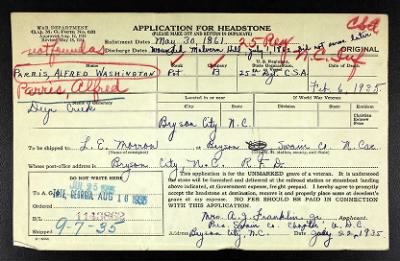 WAR DEPARTMENT
APPLICATION FOR HEADSTONE
(PLEASE MAKE OUT AND RETURN IN DUPLICATE)
CSA
Enlistment Dates May 30, 1861
25 Reg
Discharge Dates Wounded Malvern Hill July 1, 1862 did not serve later
ORIGINAL
N.C. Inf
Name
Company
PARRIS, ALFRED WASHINGTON
Pvt B 25th Regt. C.S.A.
Parris, Alfred
Feb 6, 1925
Located in or near
If World War Veteran
Deep Creek
Bryson City N.C.
To be shipped to L. E. Morrow Bryson Swain Co. N. Car.
Whose post-office address is Bryson City N.C. R.F.D.
This application is for the UNMARKED grave of a veteran. It is understood the stone
will be furnished and delivered at the railroad station or steamboat landing
above indicated, at Government expense, freight prepaid. I hereby agree to promptly
accept the headstone at destination, remove it and properly place same at decedent's
grave at my expense.
NO FEE SHOULD BE PAID IN CONNECTION
WITH THIS APPLICATION.
DO NOT WRITE HERE
GEORGIA AUG 16 1935
B/L 1143862
9-7-35
Mrs. A. J. Franklin Jr. Applicant.
Pres. Swain Co. Chapter U.D.C.
Bryson City, N.C. July 22, 1935